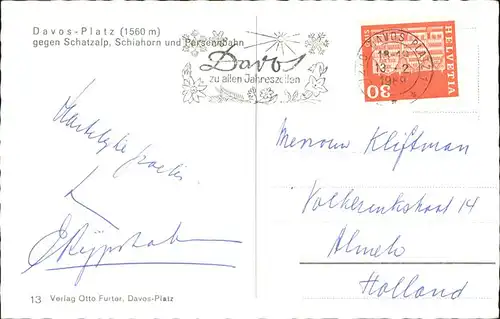 Davos-Platz (1560 m)
gegen Schatzalp, Schiahorn und Parsennbahn
Davos
zu allen Jahreszeiten
DAVOS PLATZ
HELVETIA
30
Hartelijke groeten
Mevrouw Kliftman
Volkerenkstraat 14
Almelo
Holland
13 Verlag Otto Furter, Davos-Platz